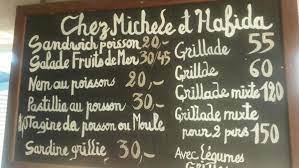 Chez Michele et Hafida
Sandwich poisson 20,-
Salade Fruits de Mer 30/45
Nem au poissons 20,-
Pastillie au poisson 30,-
Tagine da poisson ou Moule
Sardine grillie 30,-
Grillade 55
Grillde 60
Grillade mixte 120
Grillade mixte
pour 2 pers 150
Avec Légumes